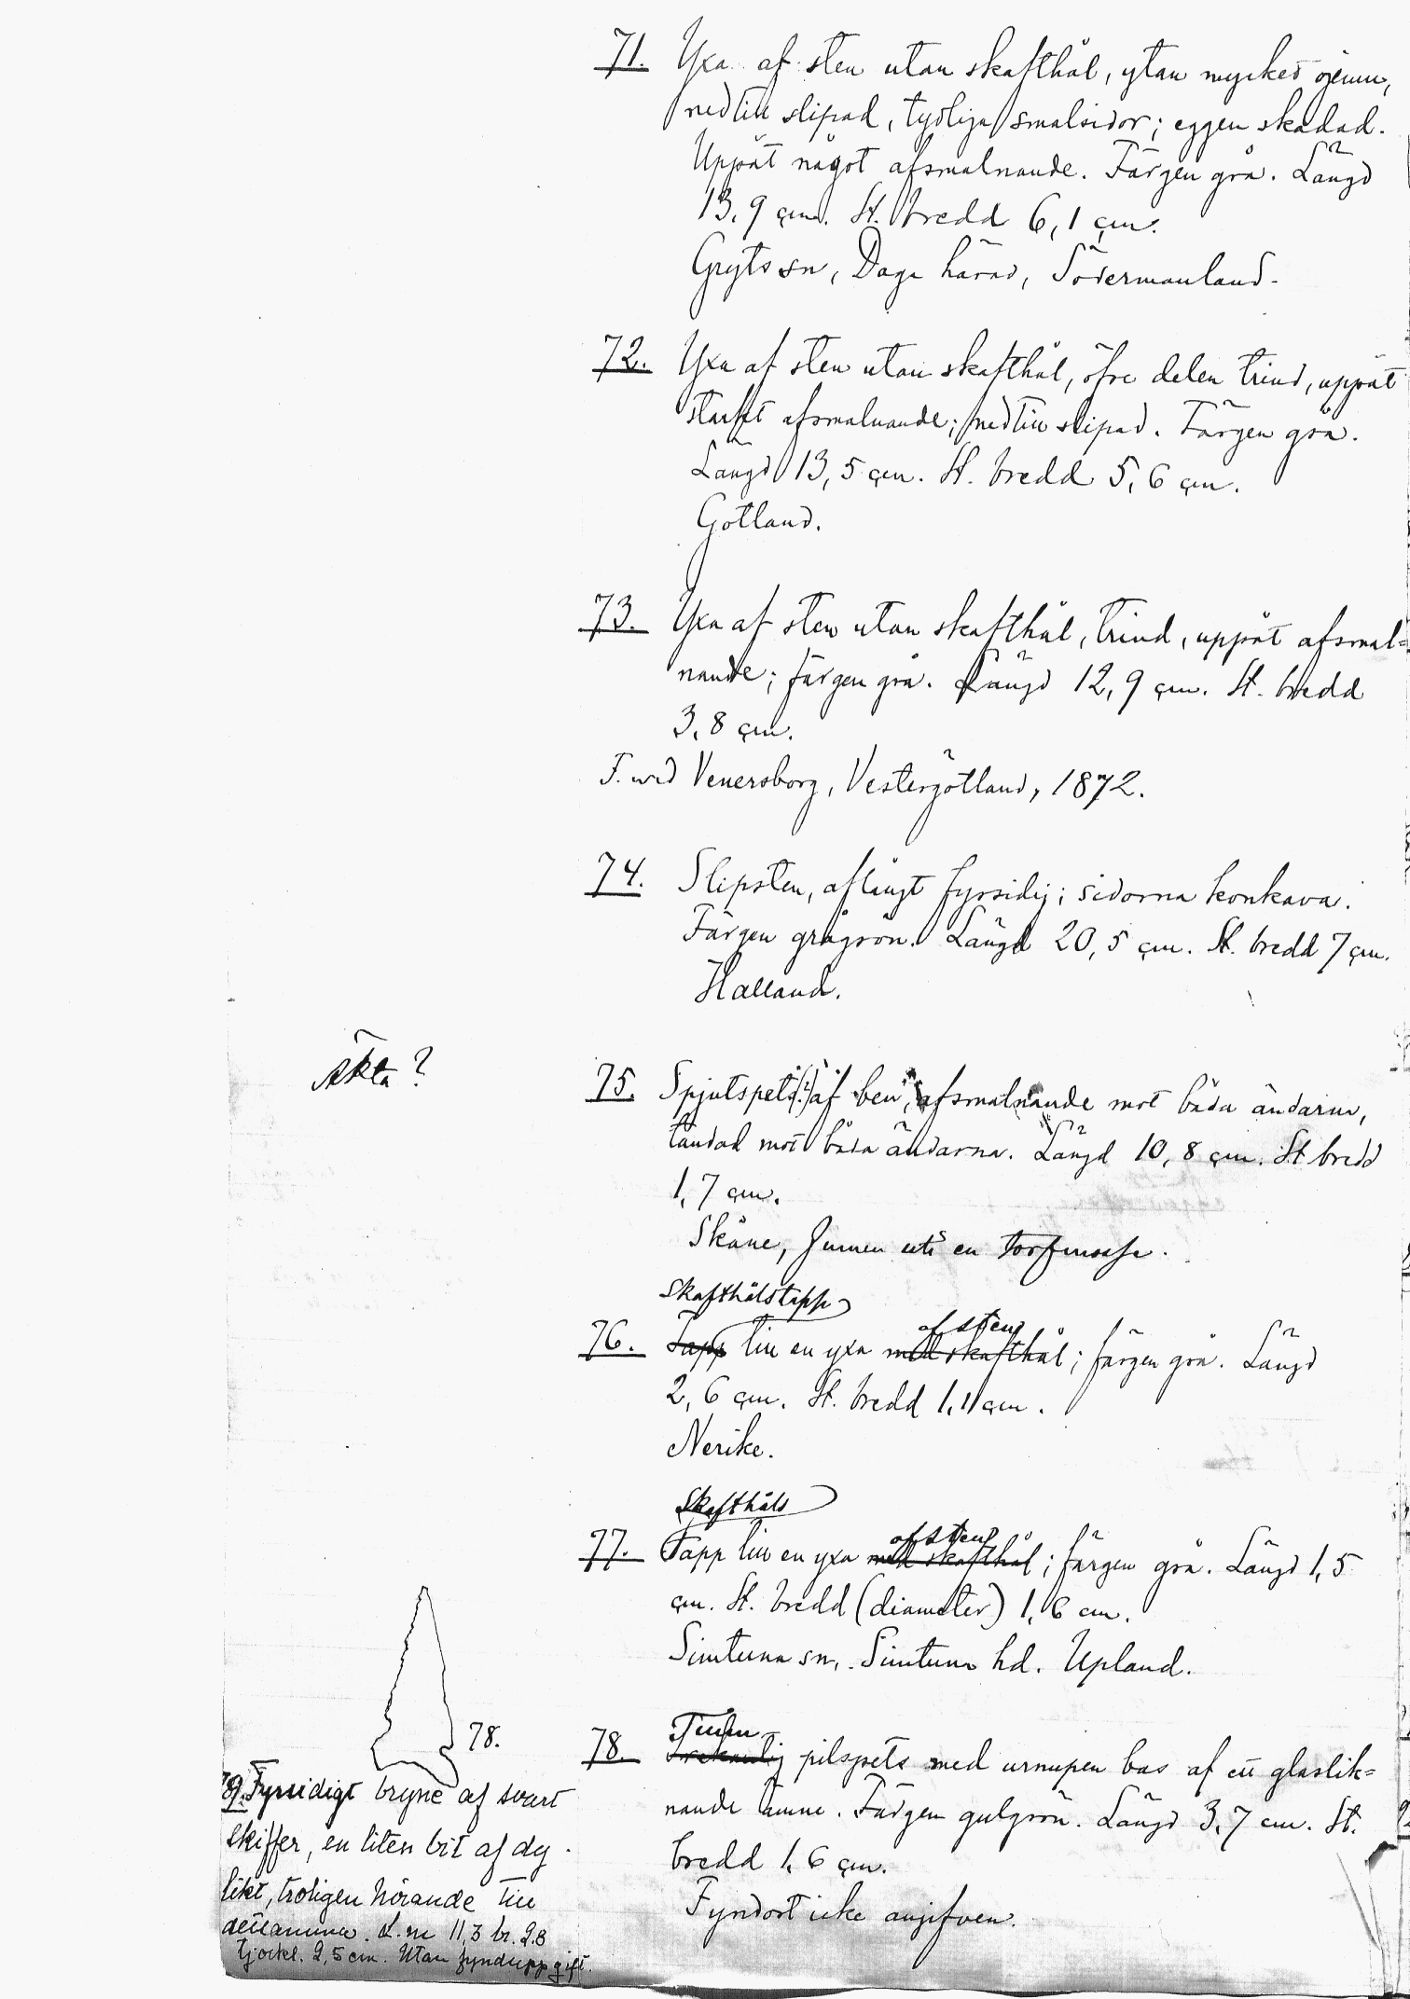 71. Yxa af sten utan skafthål, ytan mycket ojemn,
nedtill slipad, tydliga smalsidor; eggen skadad.
Uppåt något afsmalnande. Färgen grå. Längd
13,9 cm. St. bredd 6,1 cm.
Gryts sn, Daga härad, Södermanland.
72. Yxa af sten utan skafthål, öfre delen trind, uppåt
starkt afsmalnande; nedtill slipad. Färgen grå.
Längd 13,5 cm. St. bredd 5,6 cm.
Gotland.
73. Yxa af sten utan skafthål, trind, uppåt afsmal=
nande; färgen grå. Längd 12,9 cm. St. bredd
3,8 cm.
F. wid Venersborg, Vestergötland, 1872.
74. Slipsten, aflångt fyrsidig; sidorna konkava.
Färgen grågrön. Längd 20,5 cm. St. bredd 7 cm.
Halland.
Äkta?
75. Spjutspets(?) af ben, afsmalnande mot båda ändarna,
tandad mot båda ändarna. Längd 10,8 cm. St bredd
1,7 cm.
Skåne, funnen uti en torfmosse.
Skafthålstapp
af sten
76. Tapp till en yxa med skafthål; färgen grå. Längd
2,6 cm. St. bredd 1,1 cm.
Nerike.
Skafthåls
af sten
77. Tapp till en yxa med skafthål; färgen grå. Längd 1,5
cm. St. bredd (diameter) 1,6 cm.
Simtuna sn, Simtuna hd. Upland.
78.
78. pilspets med urnupen bas af ett glaslik=
nande ämne. Färgen gulgrön. Längd 3,7 cm. St.
bredd 1,6 cm.
Fyndort icke angifven.
79. Fyrsidigt bryne af svart
skiffer, en liten bit af dy
likt, troligen hörande till
detsamma. L. 11,3 br. 2.8
tjockl. 2,5 cm. Utan fynduppgift.